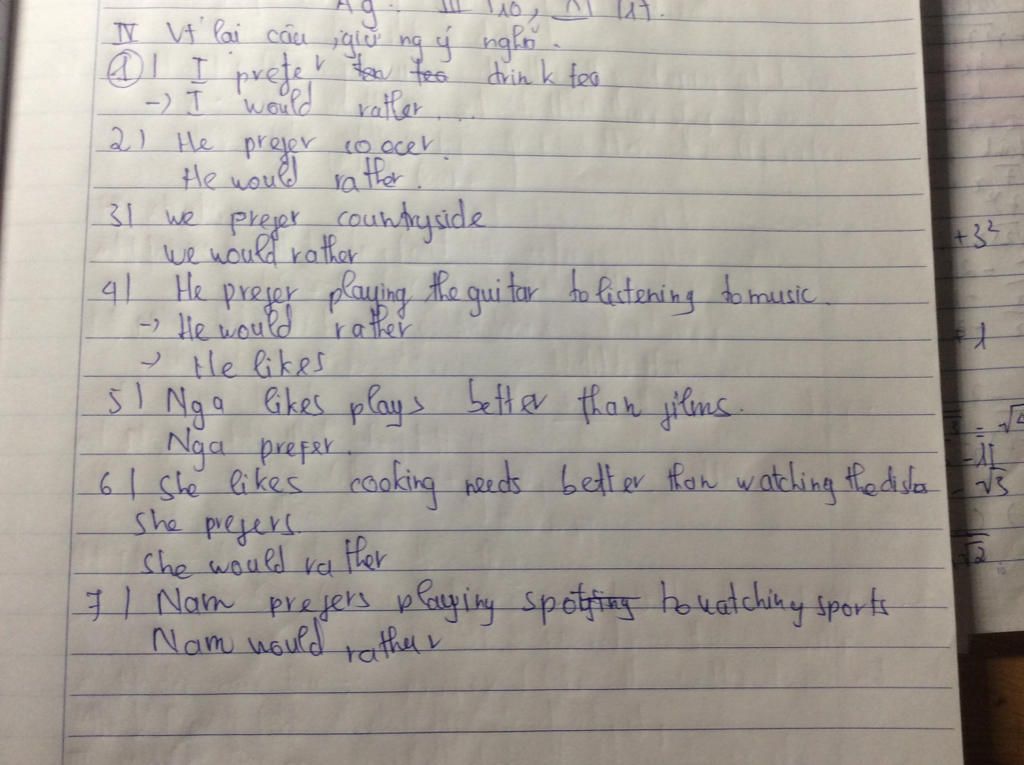 IV Vt lại câu, giữ ng ý nghĩ.
① 1 I prefer drink tea
-> I would rather....
2) He prefer soccer.
He would rather.
3) we prefer countryside
we would rather
4) He prefer playing the guitar to listening to music.
-> He would rather
-> He likes
5) Nga likes plays better than films.
Nga prefer.
6) She likes cooking meals better than watching the dishes
She prefers.
She would rather
7) Nam prefers playing sports to watching sports
Nam would rather
+3²
+1
= √4
-√3
√2